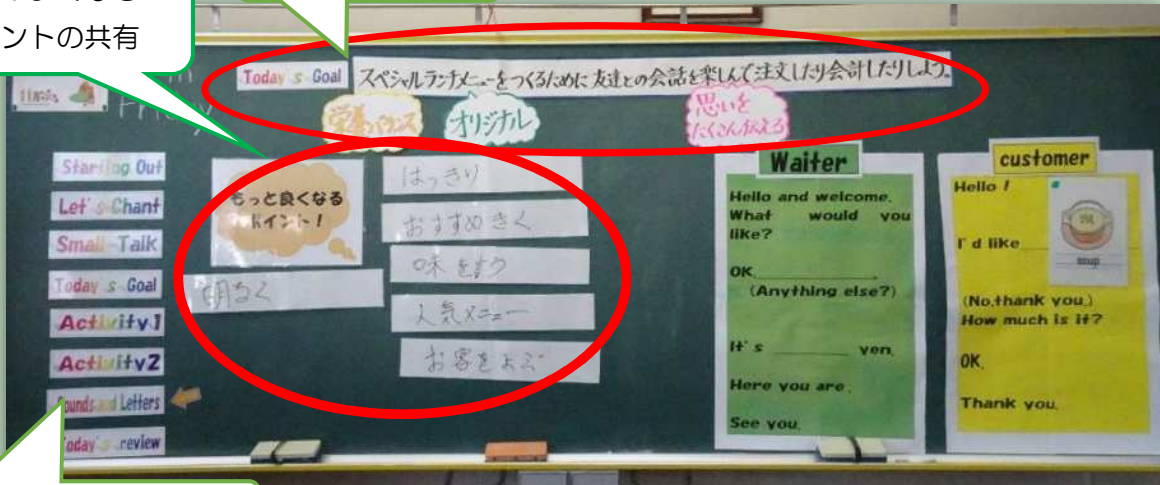 ントの共有
Today's Goal スペシャルランチメニューをつくるために友達との会話を楽しんで注文したり会計したりしよう。
Friday
栄養バランス
オリジナル
思いを
たくさん伝える
Starting Out
Let's Chant
Small-Talk
Today's Goal
Activity1
Activity2
Sounds and Letters
Today's review
もっと良くなる
ポイント!
明るく
はっきり
おすすめきく
味をきう
人気メニュー
お客をよぶ
Waiter
Hello and welcome.
What would you
like?
OK.
(Anything else?)
It's yen.
Here you are.
See you.
customer
Hello!
I'd like
soup
(No,thank you.)
How much is it?
OK.
Thank you.